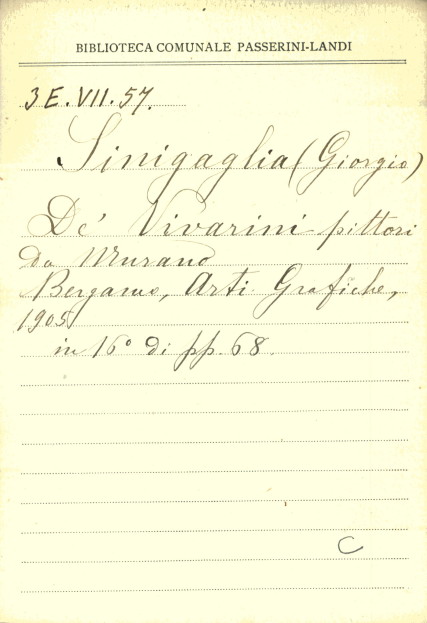 BIBLIOTECA COMUNALE PASSERINI-LANDI
3 E. VII. 57.
Sinigaglia (Giorgio)
De' Vivarini pittori
da Murano
Bergamo, Arti Grafiche,
1905
in 16° di pp. 68.
C